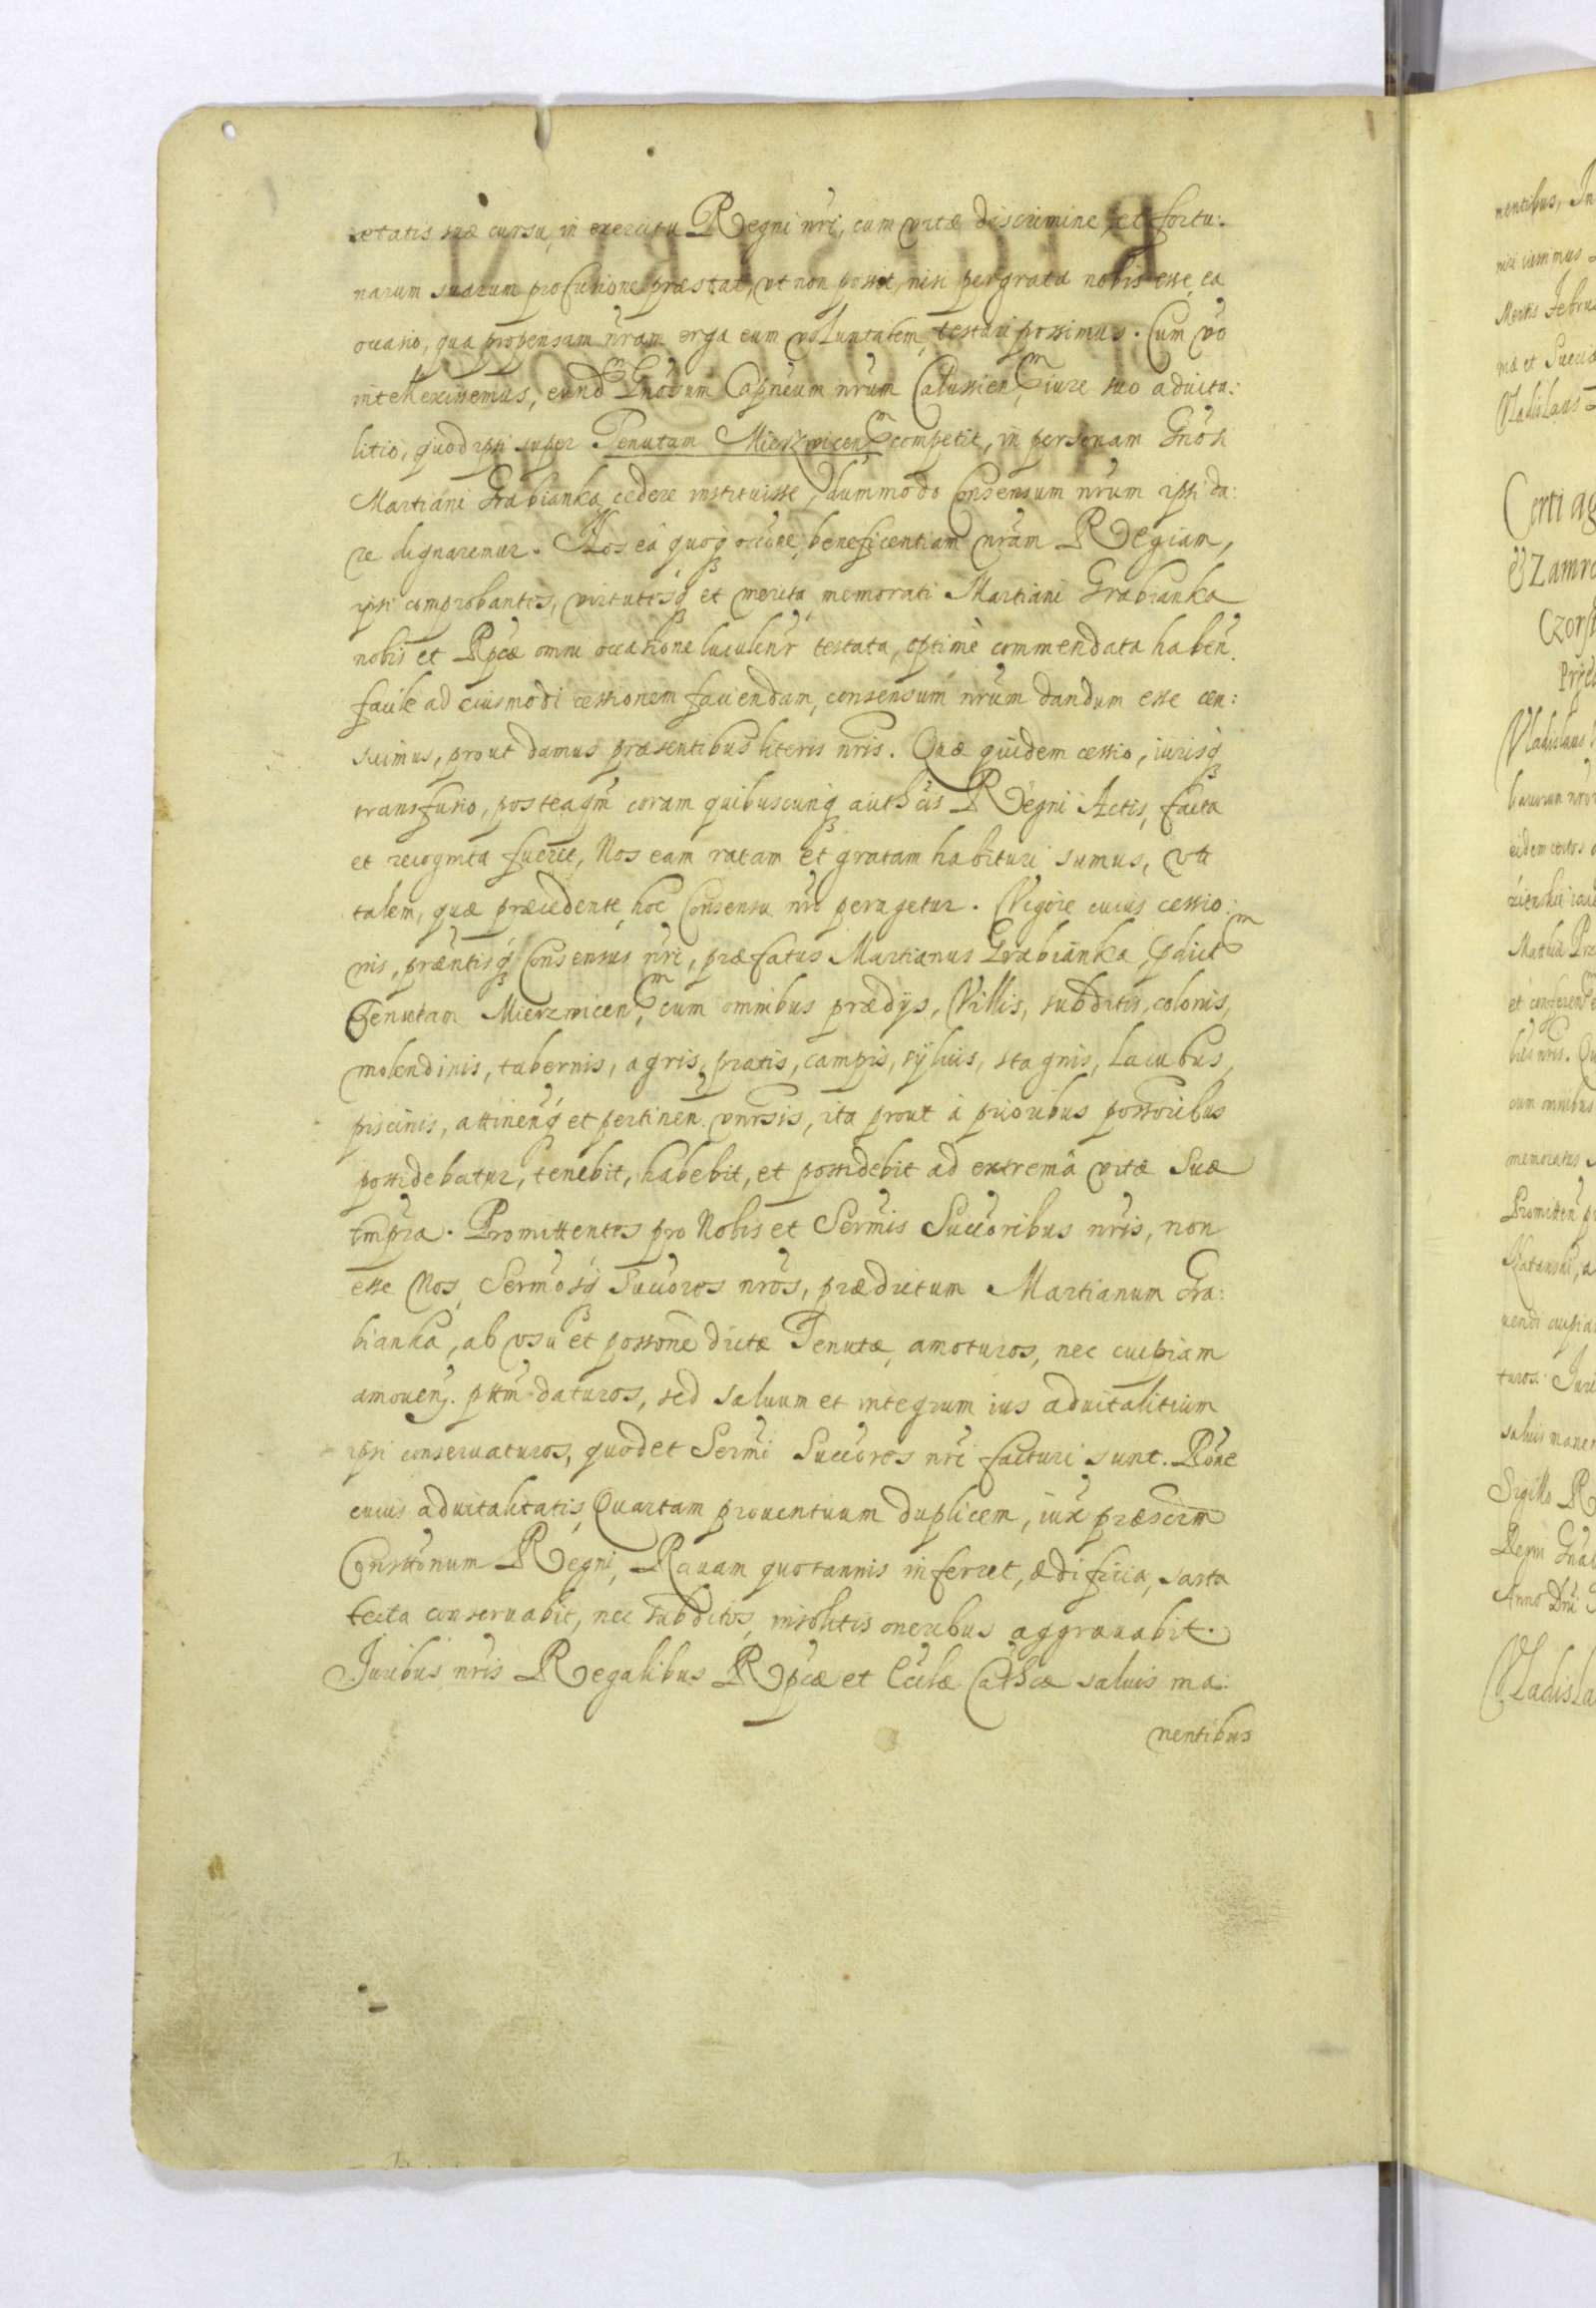 ætatis suæ cursu, in exercitu Regni nri, cum vitæ discrimine, et fortu:
narum suarum profusione præstat, vt non possit, nisi pergrata nobis esse, ea
occasio, qua propensam nram erga eum voluntatem, testari possimus. Cum vo
intellexissemus, eund Gnosum Capneum nrum Calussien, iure suo aduita:
litio, quod ipsi super Tenutam Mierzwicen competit, in personam Gnosi
Martiani Grabianka cedere instituisse, dummodo Consensum nrum ipsi da:
re dignaremur. Nos eâ quoq occone, beneficentiam nram Regiam,
ipsi comprobantes, virtutesq et merita, memorati Martiani Grabianka
nobis et Rpcæ omni occasione luculenr testata, optimè commendata haben.
facile ad eiusmodi cessionem faciendam, consensum nrum dandum esse cen:
suimus, prout damus præsentibus literis nris. Quæ quidem cessio, iurisq
transfusio, posteaqm coram quibuscunq authcis Regni Actis, facta
et recognita fuerit, Nos eam ratam et gratam habituri sumus, vti
talem, quæ præcedente, hoc Consensu nro peragetur. Vigore cuius cessio:
nis, præntisq Consensus nri, præfatus Martianus Grabianka, pdict
Tenutam Mierzwicen, cum omnibus prædijs, Villis, subditis, colonis,
molendinis, tabernis, agris, pratis, campis, syluis, stagnis, Lacubus,
piscinis, attinenq et pertinen. vnrsis, ita prout à prioribus possoribus
possidebatur, tenebit, habebit, et possidebit ad extrema vitæ suæ
tmpra. Promittentes pro Nobis et Sermis Succoribus nris, non
esse Nos, Sermosq Succores nros, prædictum Martianum Gra:
bianka, ab vsu et possone dictæ Tenutæ, amoturos, nec cuipiam
amouen. pttm daturos, sed saluum et integrum ius aduitalitium
ipsi conseruaturos, quod et Sermi Succores nri facturi sunt. Rone
cuius aduitalitatis, Quartam prouentuum duplicem, iux præscrm
Consttonum Regni, Rauam quotannis inferret, ædificia, sarta
tecta conseruabit, nec subditos, insolitis oneribus aggrauabit.
Juribus nris Regalibus Rpcæ et Ecclæ Cathcæ saluis ma:
nentibus